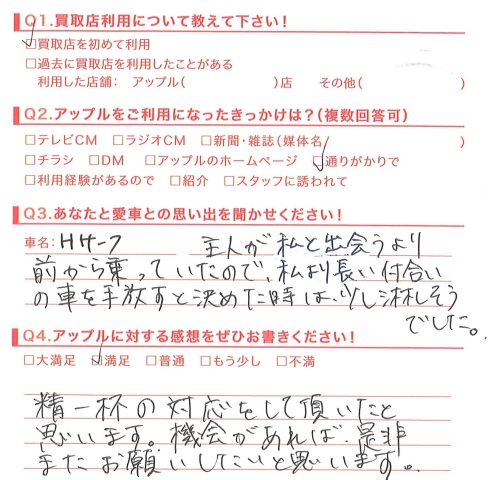 Q1.買取店利用について教えて下さい!
☑買取店を初めて利用
□過去に買取店を利用したことがある
利用した店舗: アップル( )店 その他( )
Q2.アップルをご利用になったきっかけは?(複数回答可)
□テレビCM □ラジオCM □新聞・雑誌(媒体名 )
□チラシ □DM □アップルのホームページ ☑通りがかりで
□利用経験があるので □紹介 □スタッフに誘われて
Q3.あなたと愛車との思い出を聞かせください!
車名:Hサーフ 主人が私と出会うより
前から乗っていたので、私より長い付合い
の車を手放すと決めた時は、少し淋しそう
でした。
Q4.アップルに対する感想をぜひお書きください!
□大満足 ☑満足 □普通 □もう少し □不満
精一杯の対応をして頂いたと
思います。機会があれば、是非
またお願いしたいと思います。